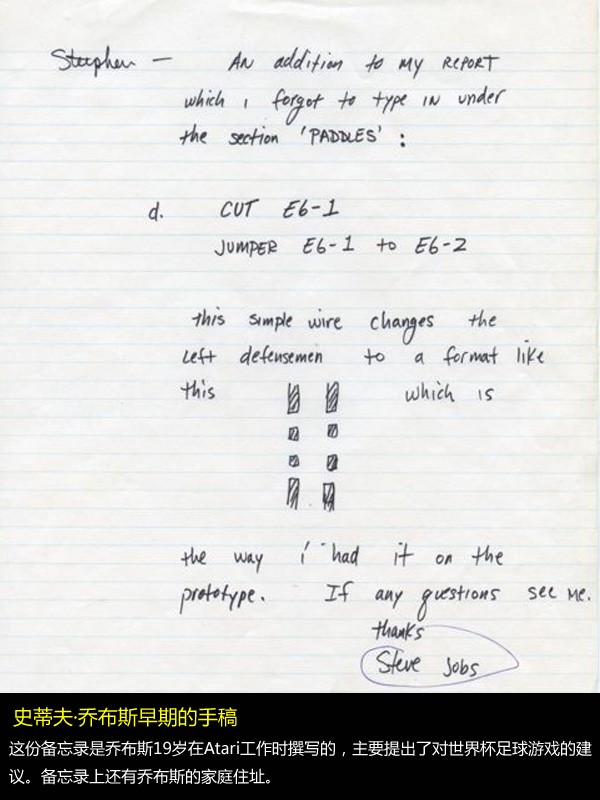 Steephen — AN addition to my REPORT
which i forgot to type in under
the section 'PADDLES' :
d. CUT E6-1
JUMPER E6-1 to E6-2
this simple wire changes the
left defensemen to a format like
this which is
the way i had it on the
prototype. If any questions see me.
thanks
Steve Jobs
史蒂夫·乔布斯早期的手稿
这份备忘录是乔布斯19岁在Atari工作时撰写的，主要提出了对世界杯足球游戏的建
议。备忘录上还有乔布斯的家庭住址。